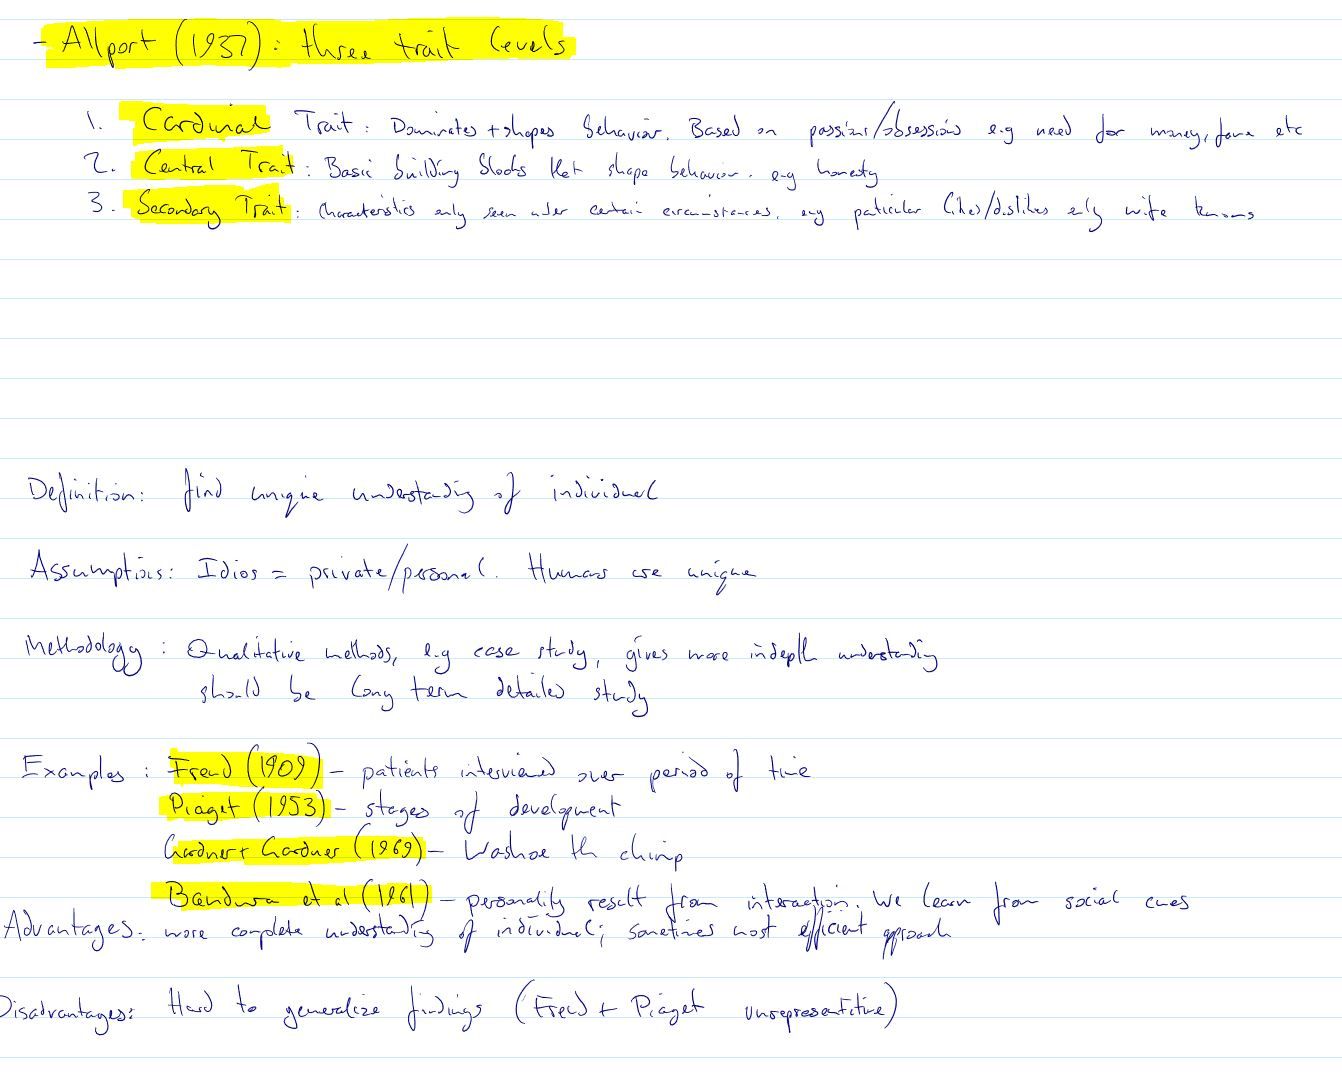 - Allport (1937): three trait levels
1. Cardinal Trait: Dominates + shapes behavior. Based on passions/obsessions e.g need for money, fame etc
2. Central Trait: Basic building blocks that shape behavior. e.g honesty
3. Secondary Trait: Characteristics only seen under certain circumstances. e.g paticular likes/dislikes only wife knows
Definition: find unique understanding of individual
Assumptions: Idios = private/personal. Humans are unique
Methodology: Qualitative methods, e.g case study, gives more indepth understanding
should be long term detailed study
Examples: Freud (1909) - patients interviewed over period of time
Piaget (1953) - stages of development
Gardner + Gardner (1969) - Washoe the chimp
Bandura et al (1961) - personality result from interaction. We learn from social cues
Advantages: more complete understanding of individual; sometimes most efficient approach
Disadvantages: Hard to generalize findings (Freud + Piaget unrepresentitive)